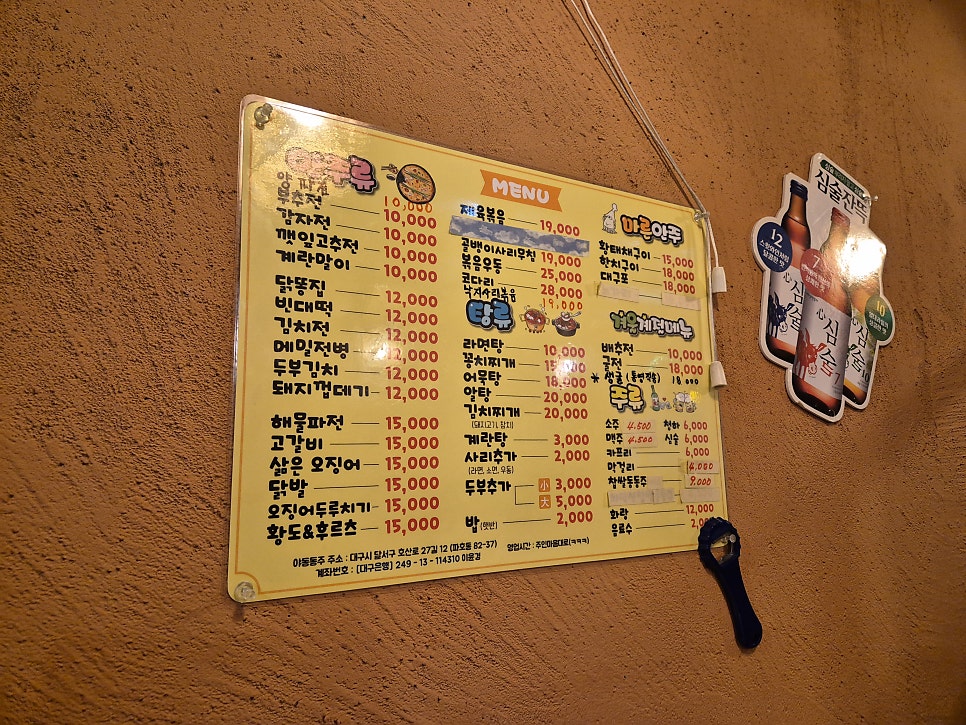 안주류
양파전 10,000
부추전 10,000
감자전 10,000
깻잎고추전 10,000
계란말이 10,000
닭똥집 12,000
빈대떡 12,000
김치전 12,000
메밀전병 12,000
두부김치 12,000
돼지껍데기 12,000
해물파전 15,000
고갈비 15,000
삶은 오징어 15,000
닭발 15,000
오징어두루치기 15,000
황도&후르츠 15,000
MENU
제육볶음 19,000
골뱅이사리무침 19,000
볶음우동 25,000
코다리 28,000
낙지사리볶음 19,000
탕류
라면탕 10,000
꽁치찌개
어묵탕 18,000
알탕 20,000
김치찌개 20,000
(돼지고기, 참치)
계란탕 3,000
사리추가 2,000
(라면, 소면, 우동)
두부추가 小 3,000
大 5,000
밥(햇반) 2,000
마른안주
황태채구이 15,000
한치구이 18,000
대구포 18,000
겨울계절메뉴
배추전 10,000
굴전 18,000
* 생굴(통영직송) 18,000
주류
소주 4,500 청하 6,000
맥주 4,500 심술 6,000
카프리 6,000
막걸리 4,000
찹쌀동동주 9,000
화랑 12,000
음료수 2,000
야동동주 주소 : 대구시 달서구 호산로 27길 12 (파호동 82-37) 영업시간 : 주인마음대로(ㅋㅋㅋ)
계좌번호 : [대구은행] 249 - 13 - 114310 이윤경
심술자뚝
12
7
10
心
심술
心
심술